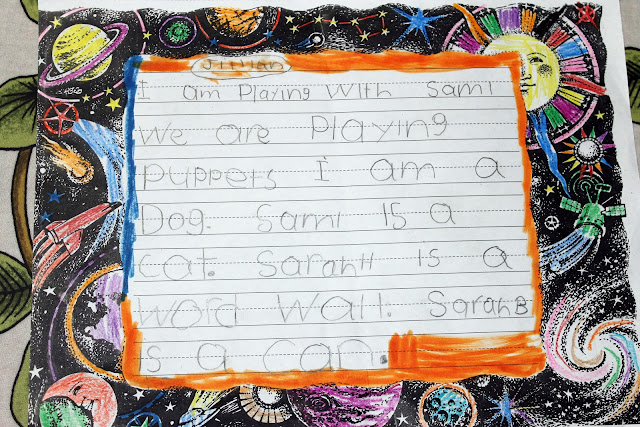 Jillian
I am Playing With Sami
We are Playing
puppets I am a
Dog. Sami is a
cat. Sarah H is a
word wall. Sarah B
is a can.